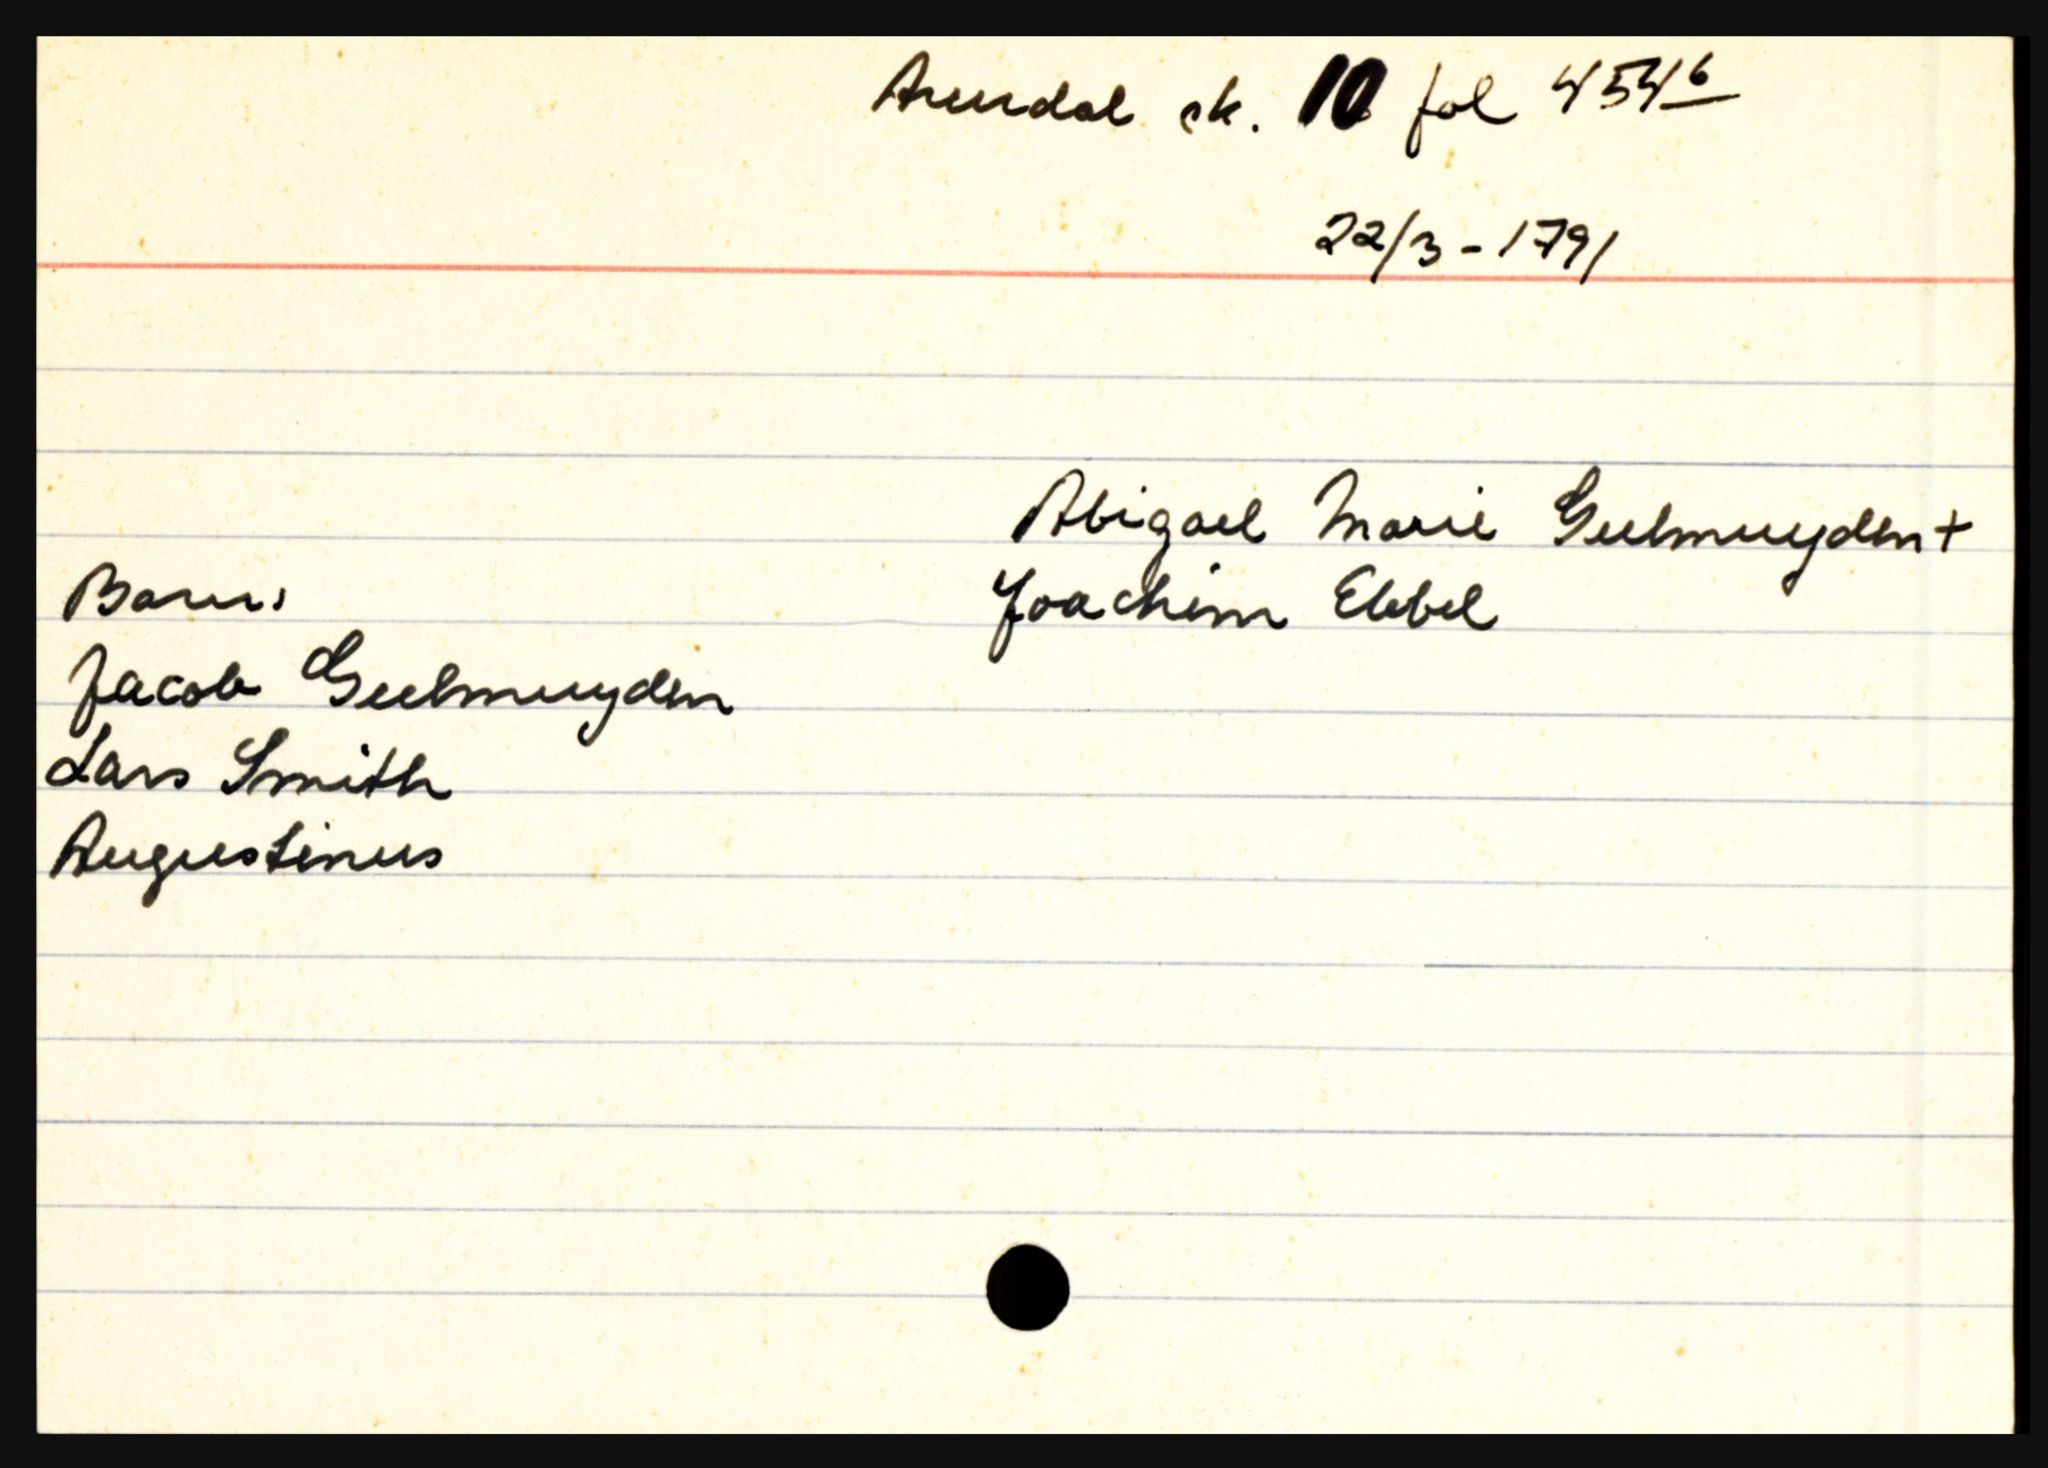 Arendal sk. 10 fol 454b
22/3 - 1791
Abigael Marie Geelmuyden +
Joachim Ebbel
Barn:
Jacob Geelmuyden
Lars Smith
Augustinus